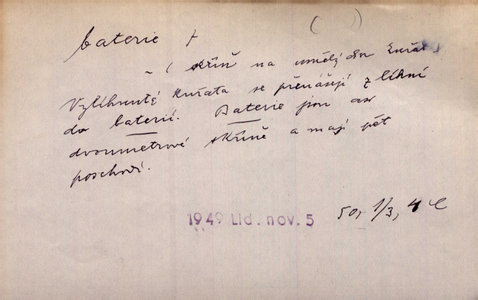 baterie
( )
skříň na umělý
Vylíhnutá kuřata se přenášejí z líhní
do baterií. Baterie jsou as
dvoumetrové skříně a mají pět
poschodí.
1949 Lid. nov. 5
50, 1/3, 4